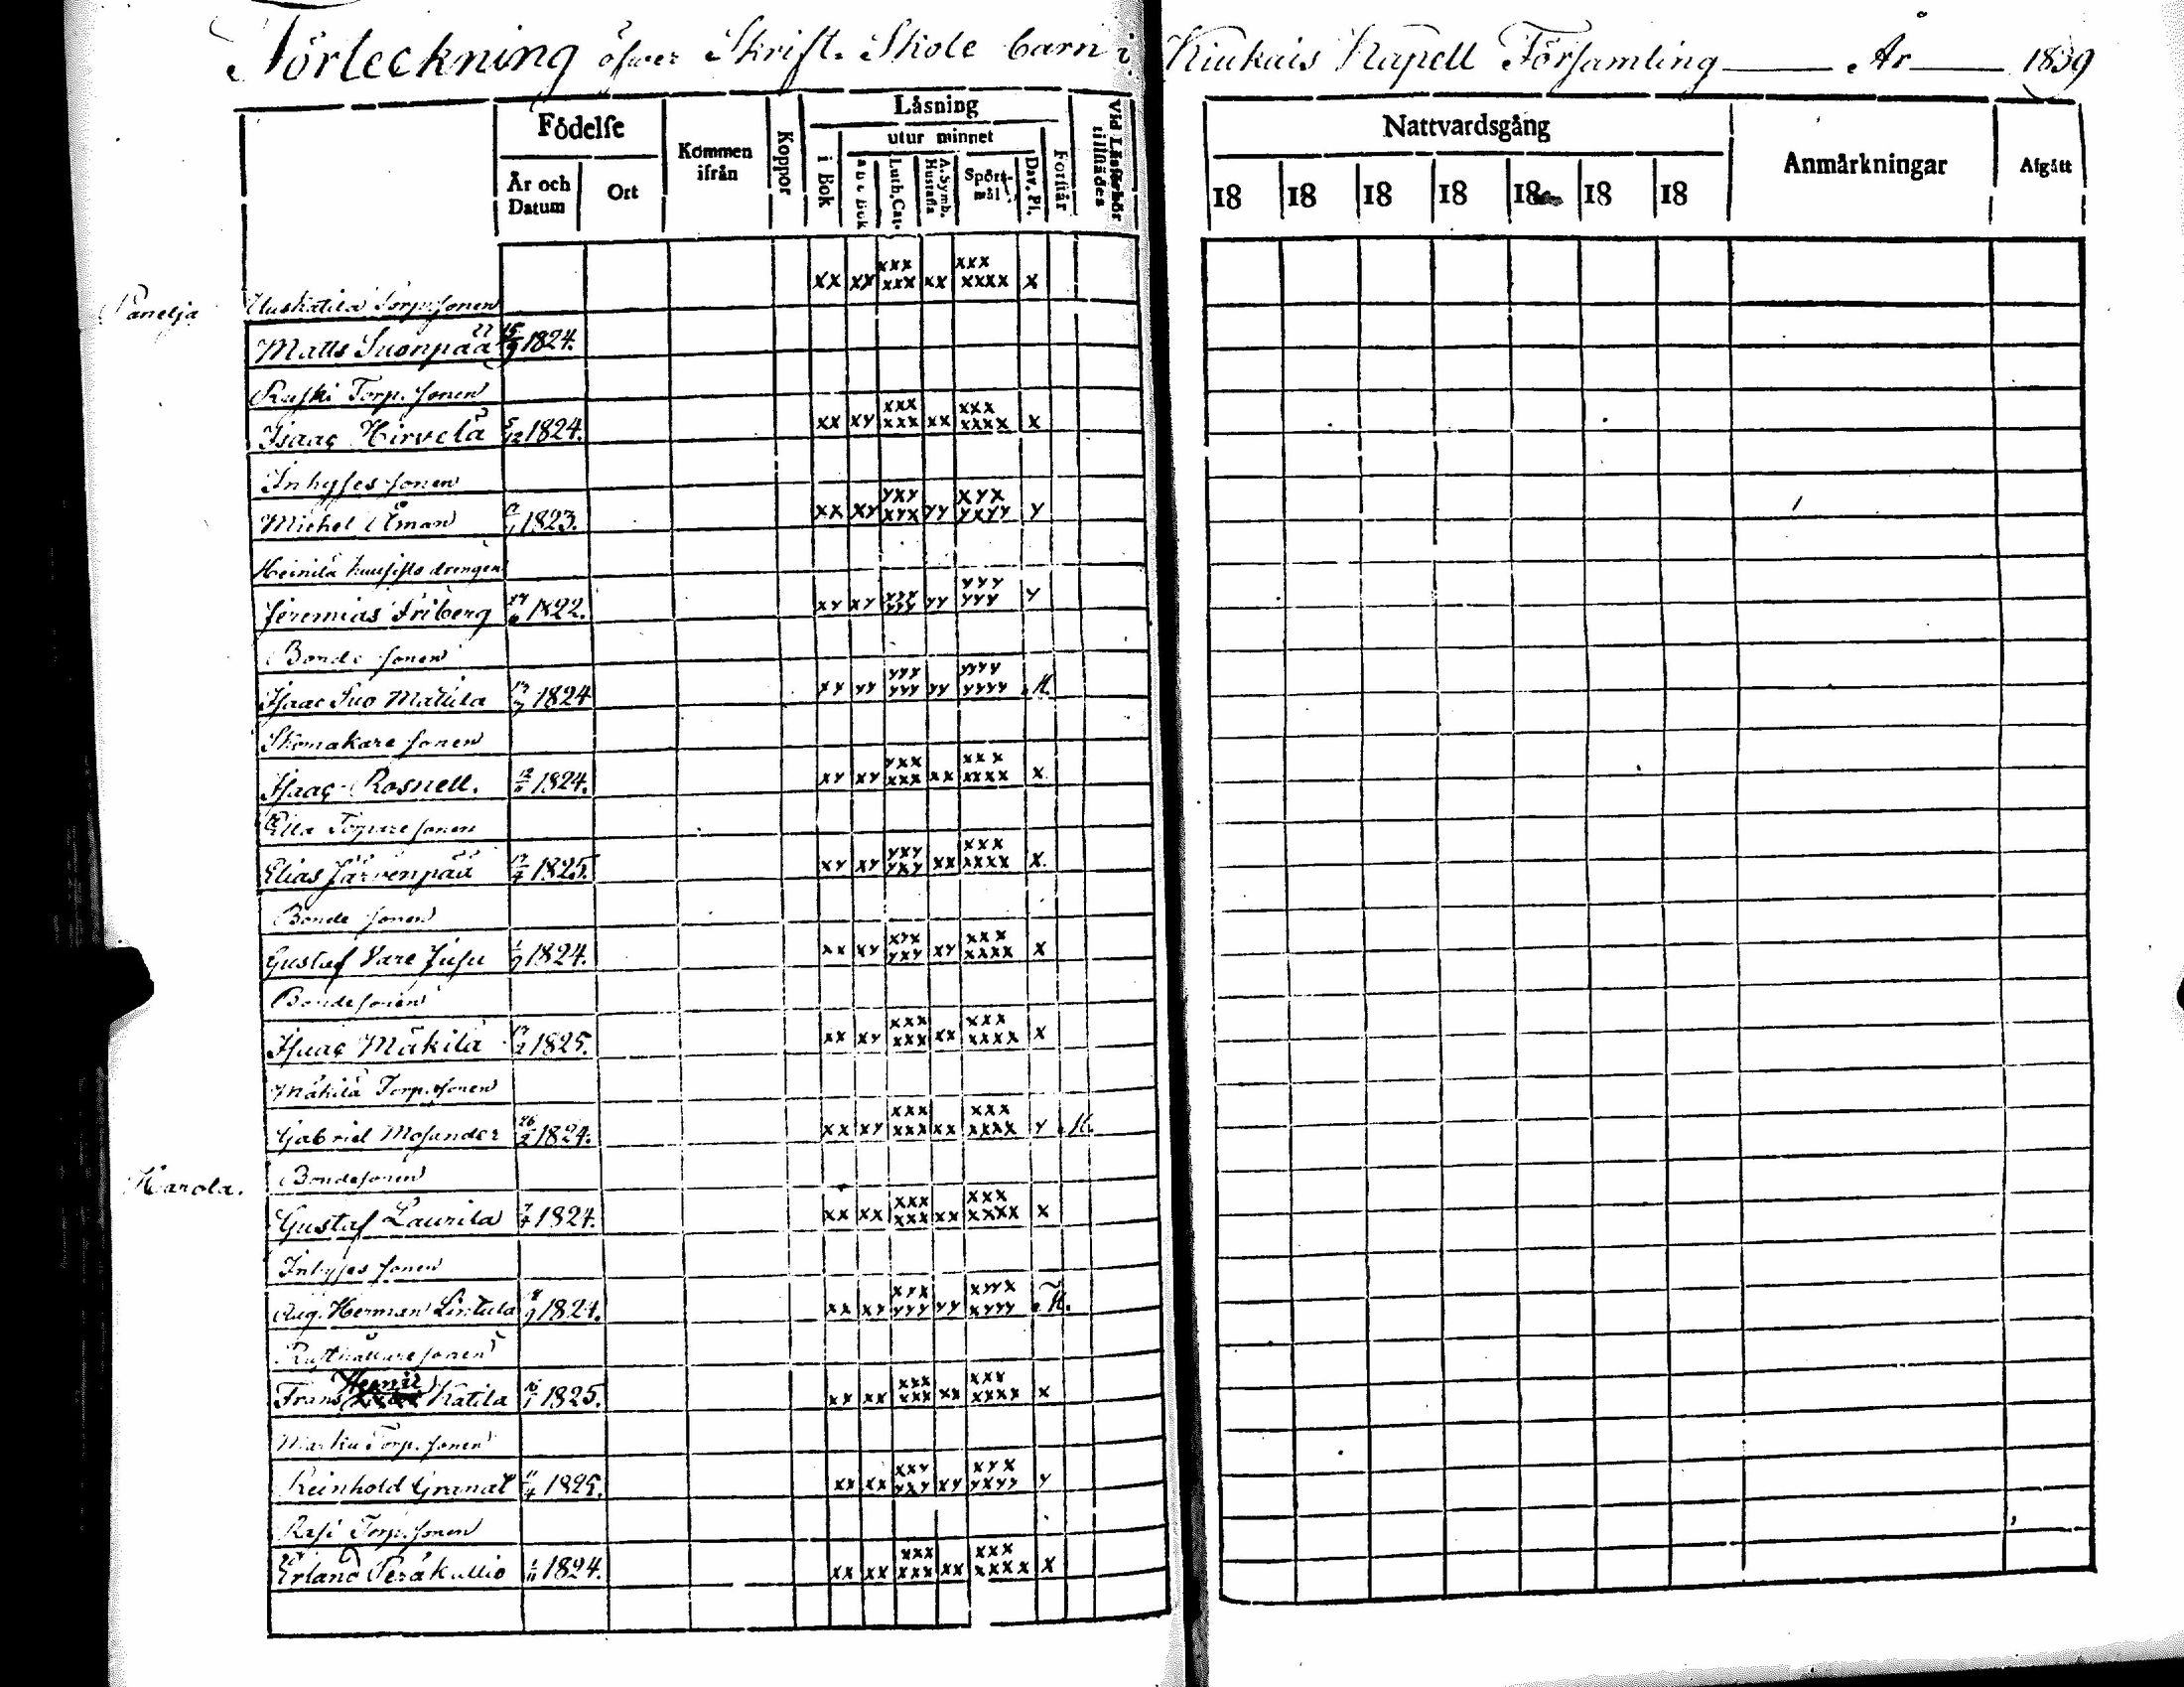 Förteckning öfwer Skrift. Skole barn i Kiukais Kapell Församling År 1839
Födelse
År och Datum
Ort
Kommen ifrån
Koppor
Läsning
i Bok
utur minnet
a b c Bok
Luth. Cat.
A. Symb. Hustafla
Spörs-mål
Dav. Ps.
Förstår
Vid Läsförhör tillstädes
Nattvardsgång
18 18 18 18 18 18 18
Anmärkningar
Afgått
Panelja
Torp. sonen
Matts Suonpää 15/9 1824. xx xx xxx xxx xx xxx xxxx x
Torp. sonen
Isaac Hirvelä 1824. xx xy xxx xxx xx xxx xxxx x
Inhyses sonen
Michel Åman 1823. xx xy yxy xyx yy xyx yxyy y
Heinilä drengen
Jeremias Friberg 1822. xy xy yyy yyy yy yyy yyy y
Bonde sonen
Isaac Suo Mattila 1824 xy yy yyy yyy yy yyyy yyyy
Skomakare sonen
Isaac Rosnell. 1824. xy xy yxx xxx xx xxx xxxx x
sonen
Elias Järvenpää 1825. xy xy yxy yxy xx xxx xxxx x.
Bonde sonen
Gustaf Vare Jusu 1/9 1824. xx xy xyx yxy xy xxx xxxx x
Bondesonen
Isaac Mäkilä 1825. xx xy xxx xxx xx xxx xxxx x
Mäkilä Torp. sonen
Gabriel Mosander 26/2 1824. xx xy xxx xxx xx xxx xxxx y
Harola.
Bondesonen
Gustaf Laurila 1824. xx xx xxx xxx xx xxx xxxx x
Inhyses sonen
Aug. Herman Lintula 1824. xx xy xyx yyy yy xyyx xyyy
Rusthållare sonen
Frans Katila 1825. xy xx xxx xxx xx xxx xxxx x
Marku Torp. sonen
Reinhold Granat 1825. xx xx xxy yxy xy xyx yxyy y
Rasi Torp. sonen
Erland Peräkallio 1/11 1824. xx xx xxx xxx xx xxx xxxx x